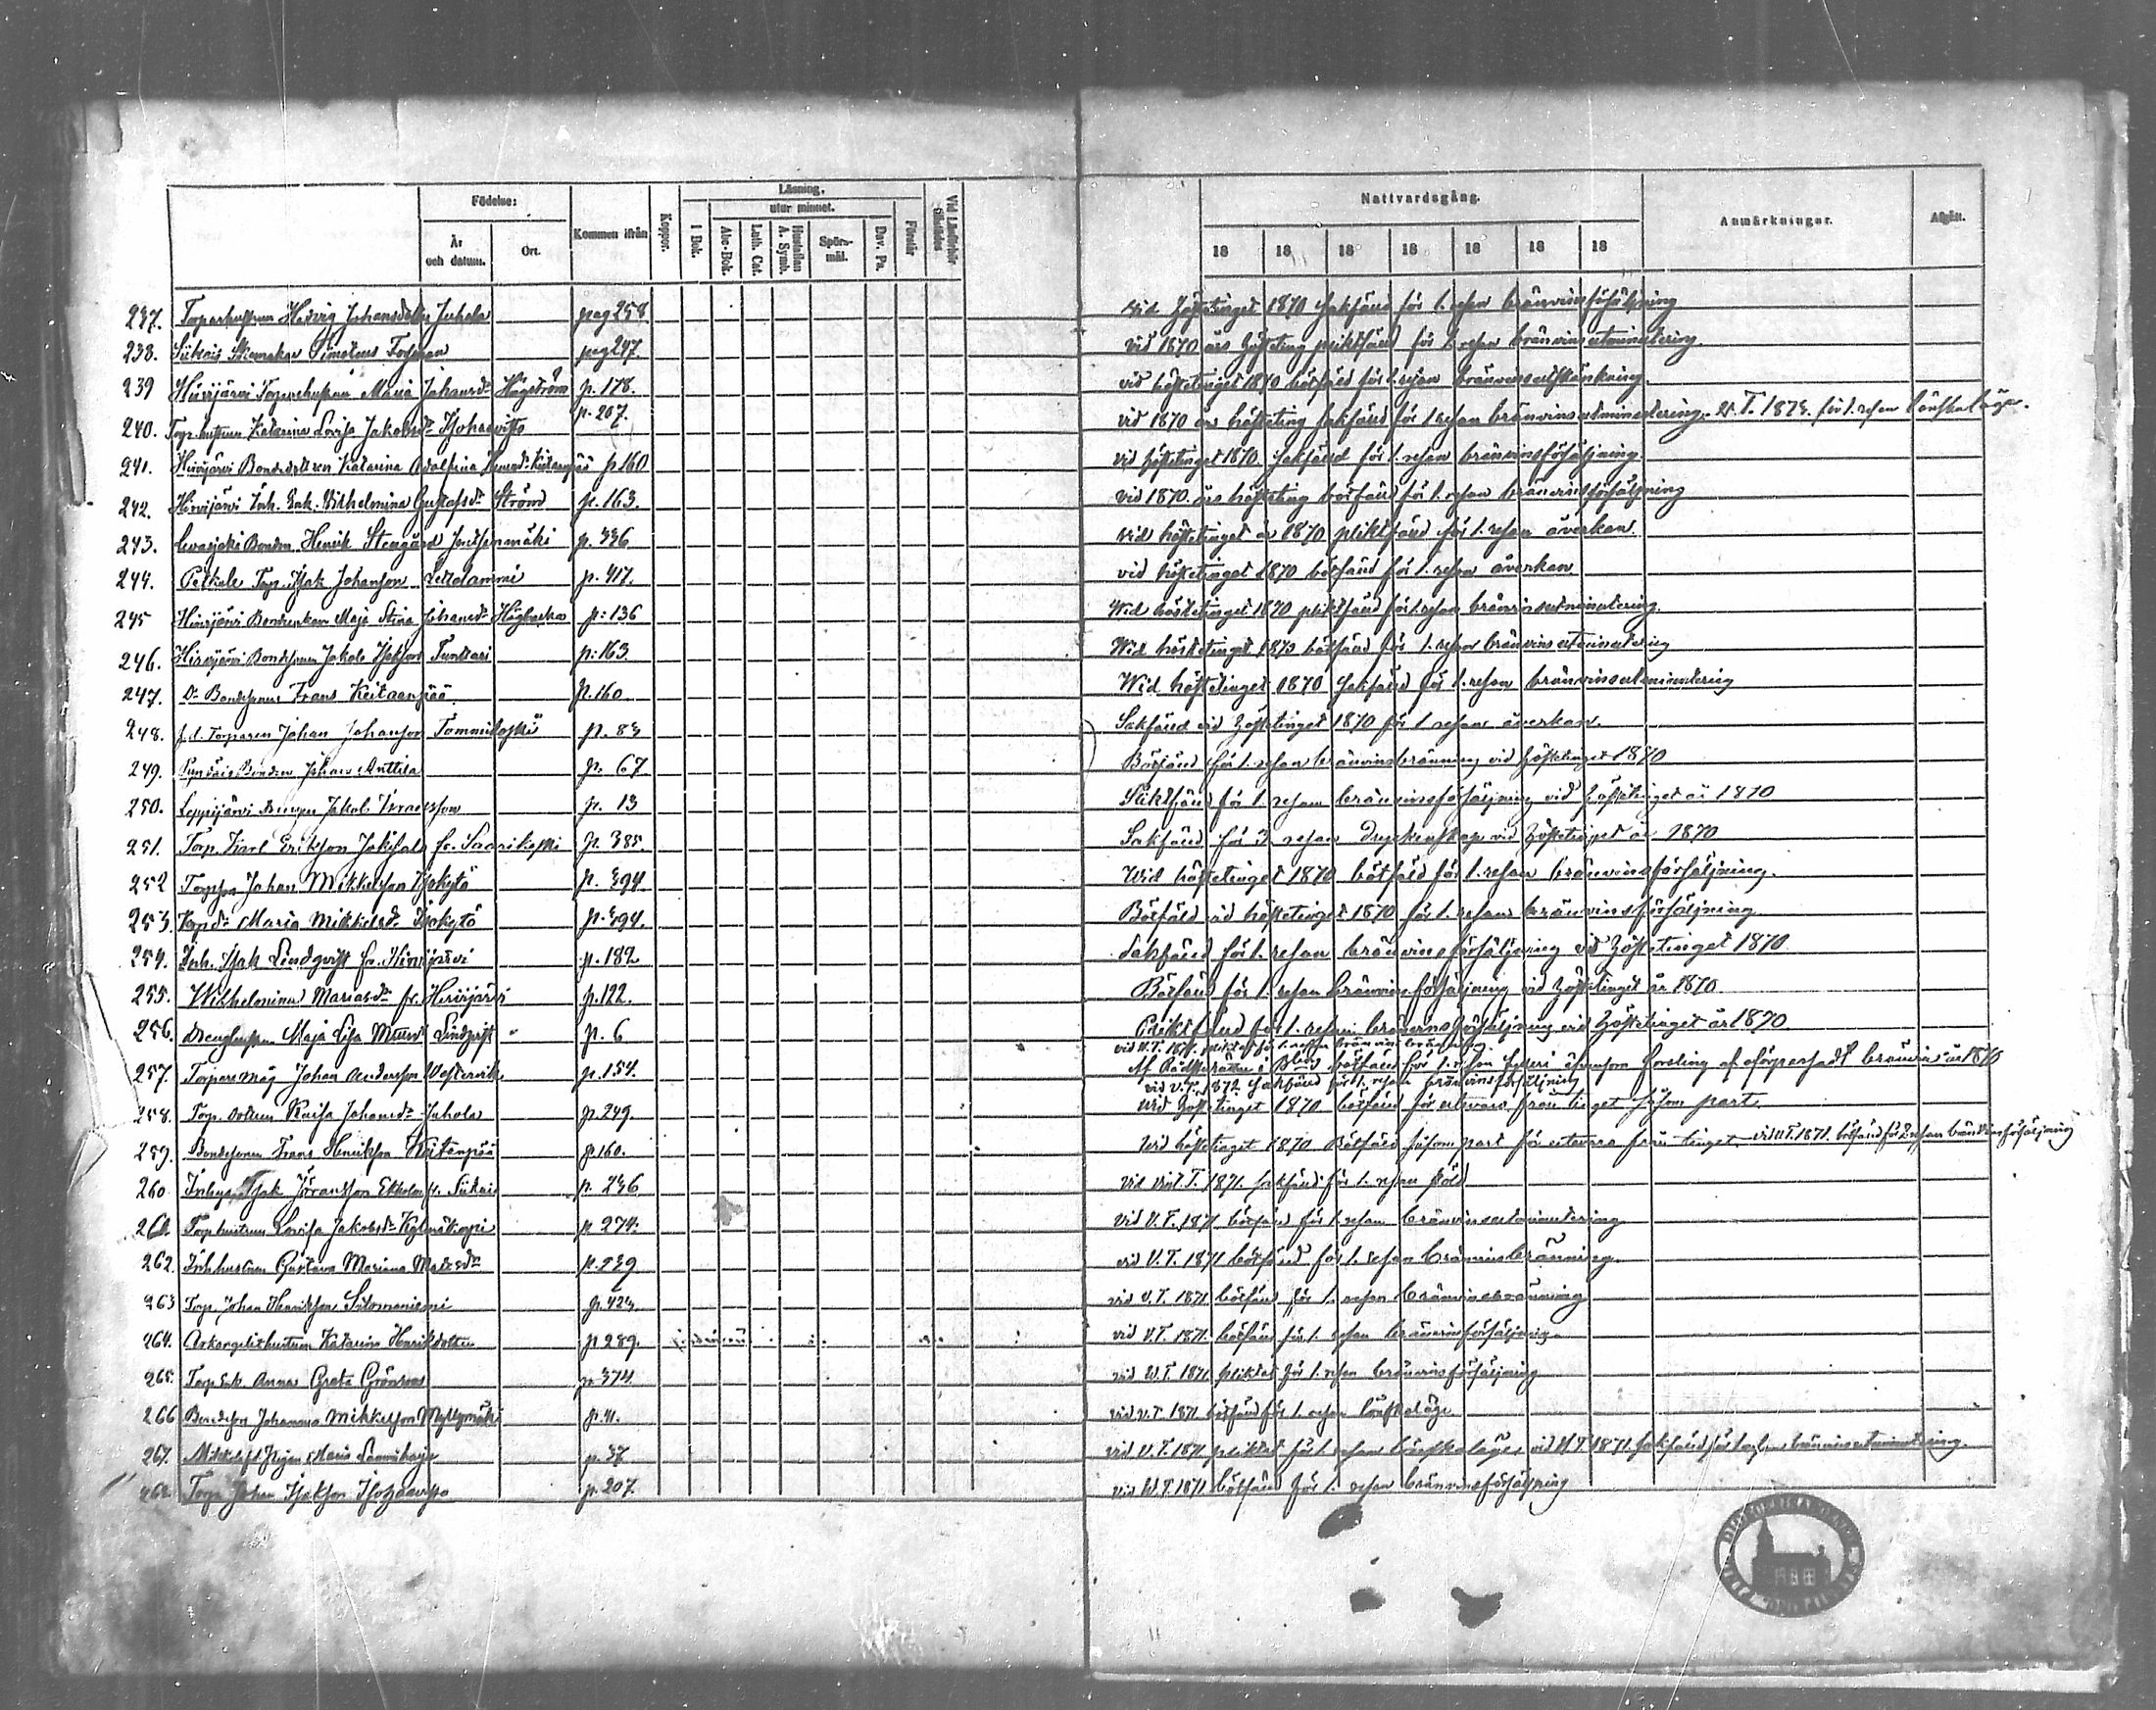 Födelse:
Läsning.
utur minnet.
Nattvardsgång.
År och datum.
Ort.
Kommen ifrån
Koppor.
I Bok.
Abc-Bok.
Luth. Cat.
Hustaflan A. Symb.
Spörsmål.
Dav. Ps.
Förstår
Vid Läsförhör tillstädes
18 18 18 18 18 18 18
Anmärkningar.
Afgått.
237. Torparhustrun Hedvig Johansdotter Juhola pag 258 vid hösttinget 1870 sakfäld för 1. resan bränvinsförsäljning
238. Siikais Timoteus pag 247 vid 1870 års hösteting pliktfäld för 1. resan bränvinsutminutering
239 Hirvijärvi Torparhustrun Maria Johansdr Högström p. 178. vid höstetinget 1870 bötfäld för 1. resan bränvinsutskänkning
240. Torp.hustrun Katarina Lovisa Jakobsdr p. 207. vid 1870 års hösteting sakfäld för 1 resan bränvinsutminutering. för 1. resan lönskaläge.
241. Hirvijärvi Katarina Adolfina Keitaanpää p 160 vid hösttinget 1870 sakfäld för 1. resan bränvinsförsäljning.
242. Hirvijärvi Inh. Enk. Vilhelmina Gustafsdr Ström p. 163. vid 1870 års hösteting bötfäld för 1. resan bränvinsförsäljning
243. Bonden Henrik Stengård p. 336 vid höstetinget år 1870 pliktfäld för 1. resan åverkan.
244. Torp. Isak Johansson p. 417. vid höstetinget 1870 bötfäld för 1. resan åverkan
245 Hirvijärvi Bondenkan Maja Stina Johansdr Högbacka p: 136 Wid höstetinget 1870 pliktfäld för 1. resan bränvinsutminutering.
246. Hirvijärvi Bondesonen Jakob Isaksson Tuntari p: 163 Wid höstetinget 1870 bötfäld för 1. resan bränvinsutminutering
247. Do Bondesonen Frans Keitaanpää p. 160 Wid höstetinget 1870 sakfäld för 1. resan bränvinsutminutering
248. f.d. Torparen Johan Johansson Tommilaski p. 83 Sakfäld vid hösttinget 1870 för 1. resan åverkan.
249. Bonden Johan Anttila p. 67 Bötfäld för 1. resan bränvinsbränning vid hösttinget 1870
250. Leppijärvi Drengen Jakob p. 13 Pliktfäld för 1. resan bränvinsförsäljning vid hösttinget år 1870
251. Torp. Karl Eriksson fr. Saarikoski p. 385. Sakfäld för 3 resan dryckenskap vid hösttinget år 1870
252 Johan Mikkelsson Isokytö p. 394. Wid höstetinget 1870 bötfäld för 1. resan bränvinsförsäljning.
253. Maria Mikkelsdr Isokytö p. 394. Bötfäld vid höstetinget 1870 för 1. resan bränvinsförsäljning
254. Inh. Isak Lindqvist fr. Hirvijärvi p. 182 Sakfäld för 1. resan bränvinsförsäljning vid hösttinget 1870
255. Wilhelmina Mariasdr fr. Hirvijärvi p. 122. Bötfäld för 1. resan bränvinsförsäljning vid hösttinget år 1870
256. Drenghustrun Maja Lisa Lindqvist " p. 6 Pliktfäld för 1. resan bränvinsförsäljning vid hösttinget år 1870
vid V.T. 1871 pliktat för 1. resan bränvinsbränning
257. Torparemåg Johan Andersson Westervik p. 154. Af Rådhusrätten i B:borg bötfäld för 1. resan fylleri af oförpassadt bränvin år 1870
vid V.T. 1872 sakfäld för 1. resan bränvinsförsäljning
258. Torp.dottren Kaisa Johansdr Juhola p. 249. Wid hösttinget 1870 bötfäld för utevaro från tinget såsom part.
259. Bondesonen Frans Henriksson Keitanpää p. 160. Wid höstetinget 1870 bötfäld såsom part för utevaro från tinget - vid V.T. 1871 bötfäld för 2 resan bränvinsförsäljning
260 Isak Göransson Ekholm fr. Siikais p. 236 vid vint. T. 1871 sakfäld för 1. resan stöld
261. Torp.hustrun Lovisa Jakobsdr p. 274. vid V.T. 1871 bötfäld för 1. resan bränvinsutminutering
262. Inhhustrun Gustava Mariana Matsdr p. 239 vid V.T. 1871 bötfäld för 1. resan bränvinsbränning
263 Torp. Johan Henriksson Salomaniemi p. 423 vid V.T. 1871 bötfäld för 1. resan bränvinsbränning
264. hustrun Katarina Henriksdotter p 289. vid V.T. 1871. bötfäld för 1. resan bränvinsförsäljning.
265. Torp.enk. Anna Greta Grönroos p. 374 vid W.T. 1871 pliktat för 1. resan bränvinsförsäljning
266 Bondeson Johannes Mikkelsson Myllymäki p. 41. vid V.T. 1871 bötfäld för 1. resan lönskaläge
267. Maria p. 37 vid V.T. 1871 pliktat för 1. resan lönskaläge vid H.T. 1871 sakfäld för bränvinsutminutering.
268 Torp. Johan Isaksson p. 207 vid W.T. 1871 bötfäld för 1. resan bränvinsförsäljning